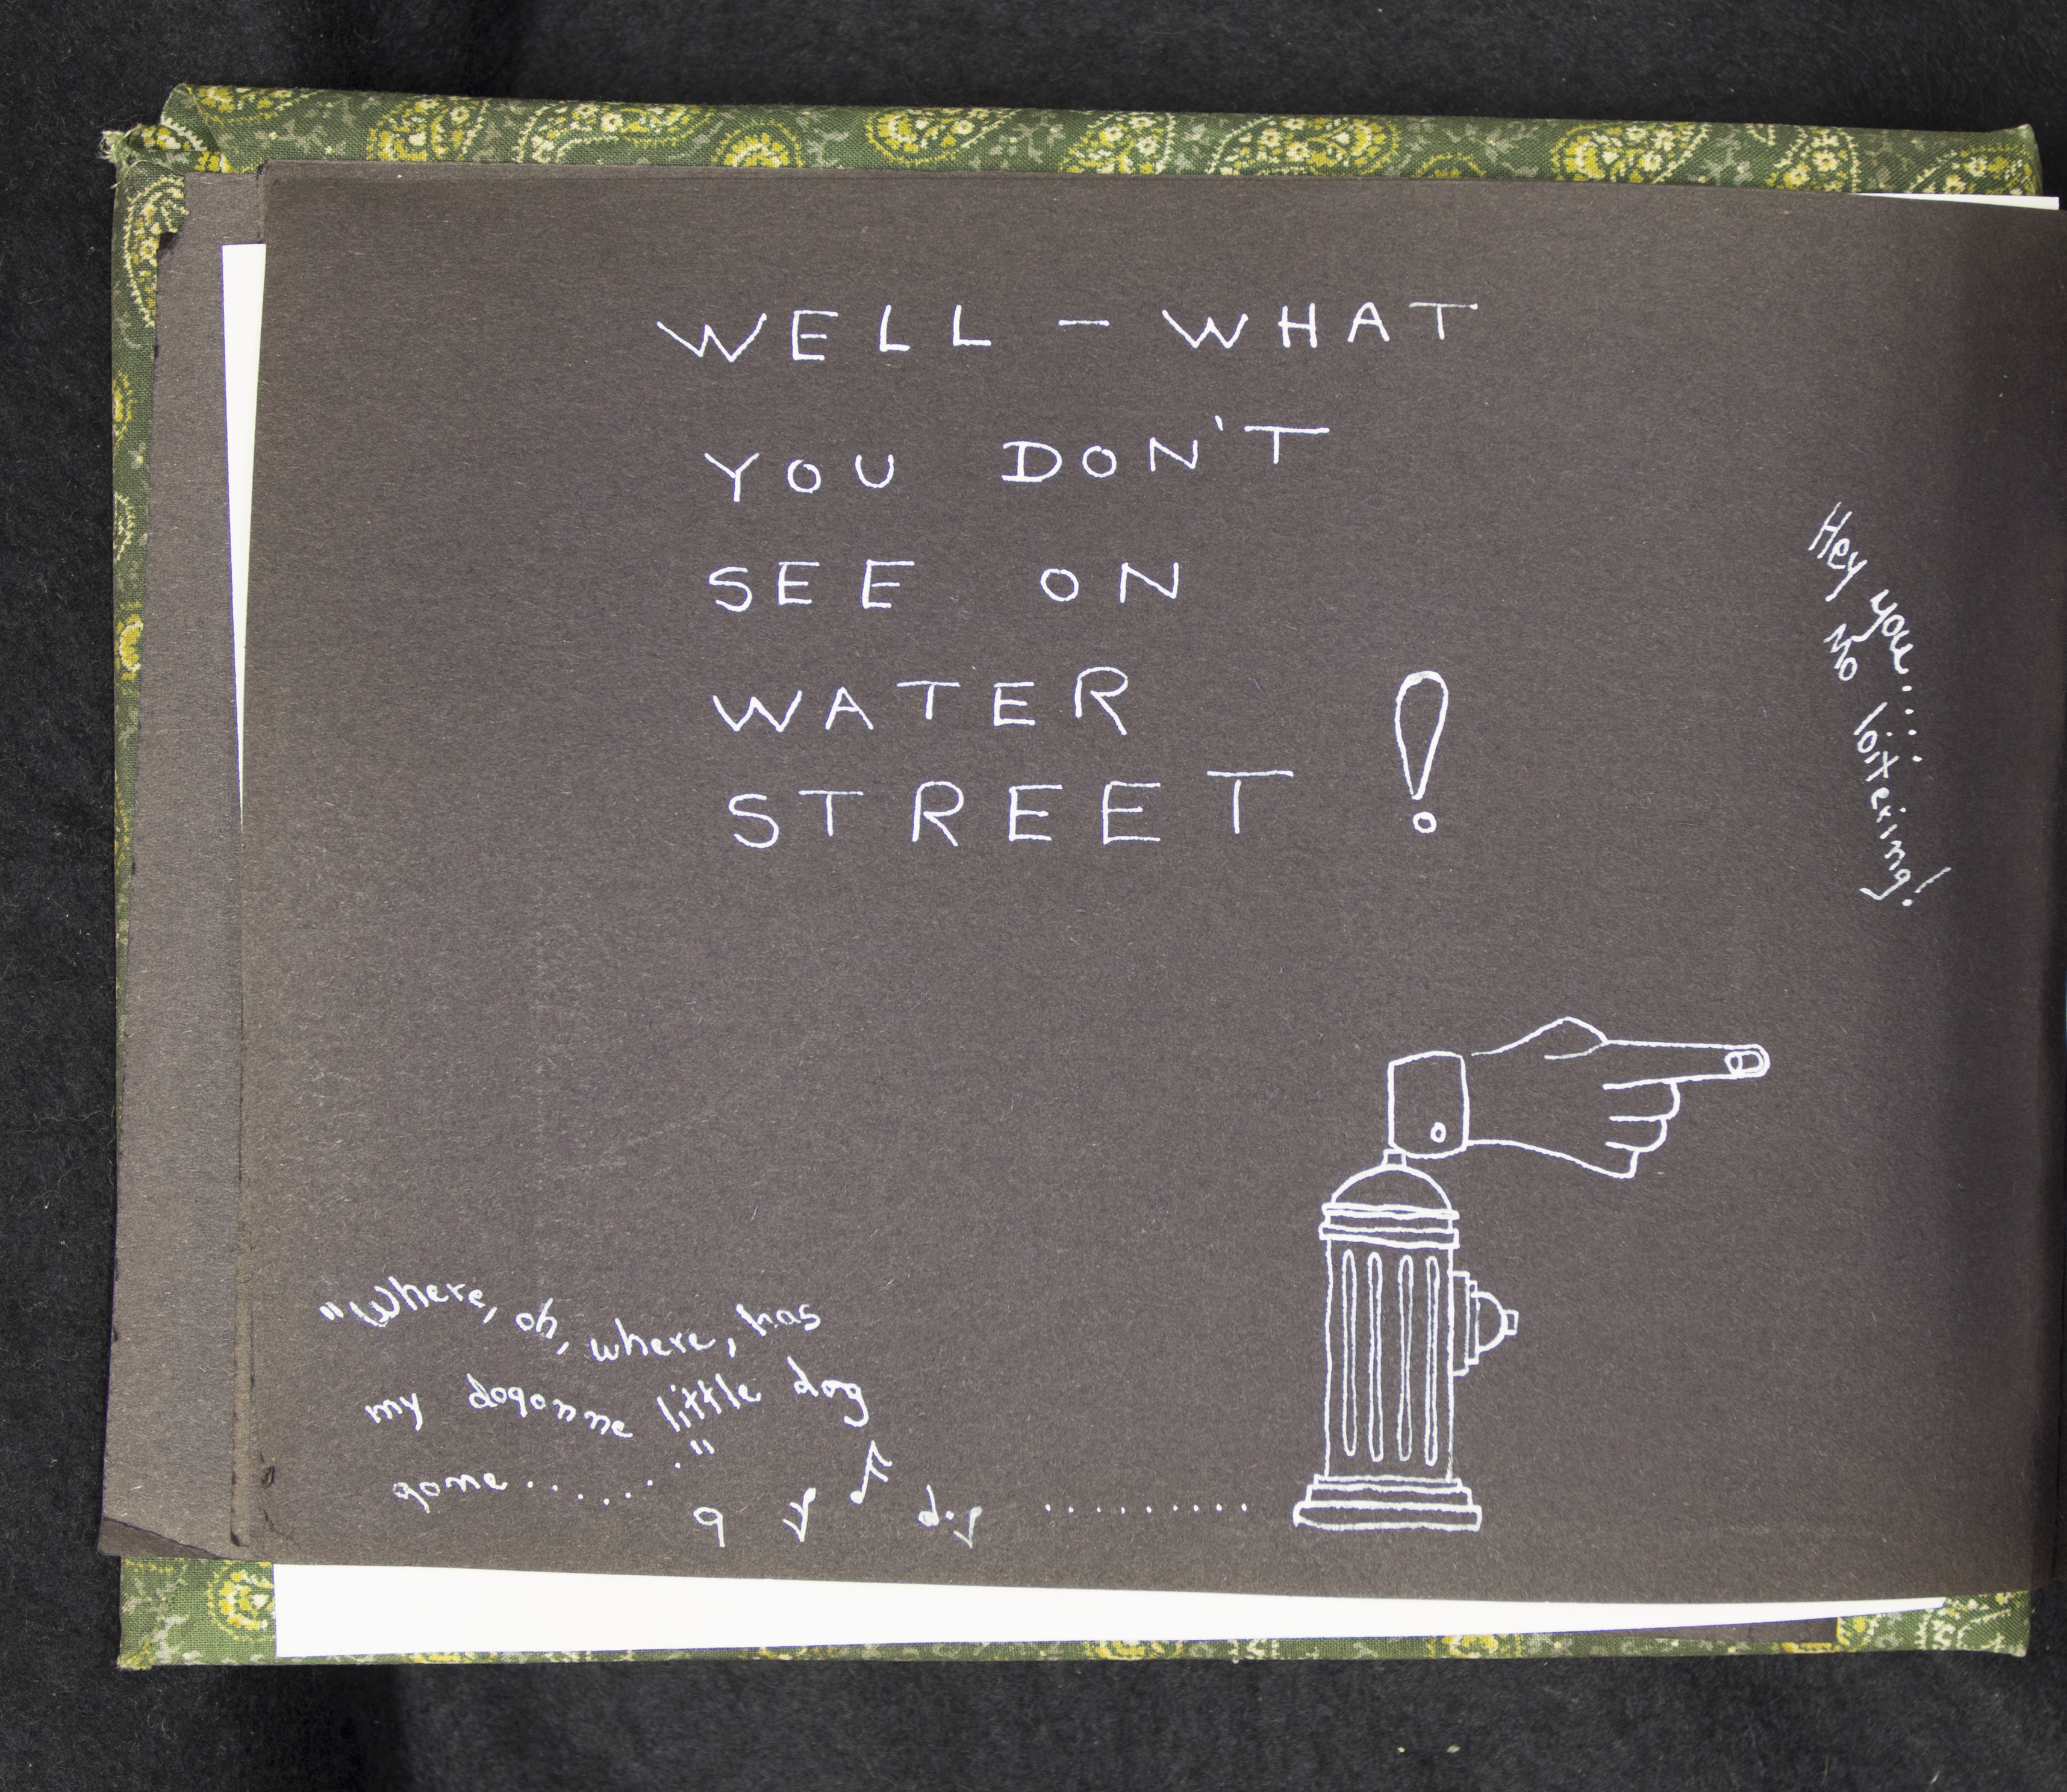 WELL - WHAT
YOU DON'T
SEE ON
WATER
STREET !
Hey you......
No loitering!
"Where, oh, where, has
my dogonne little dog
gone........"